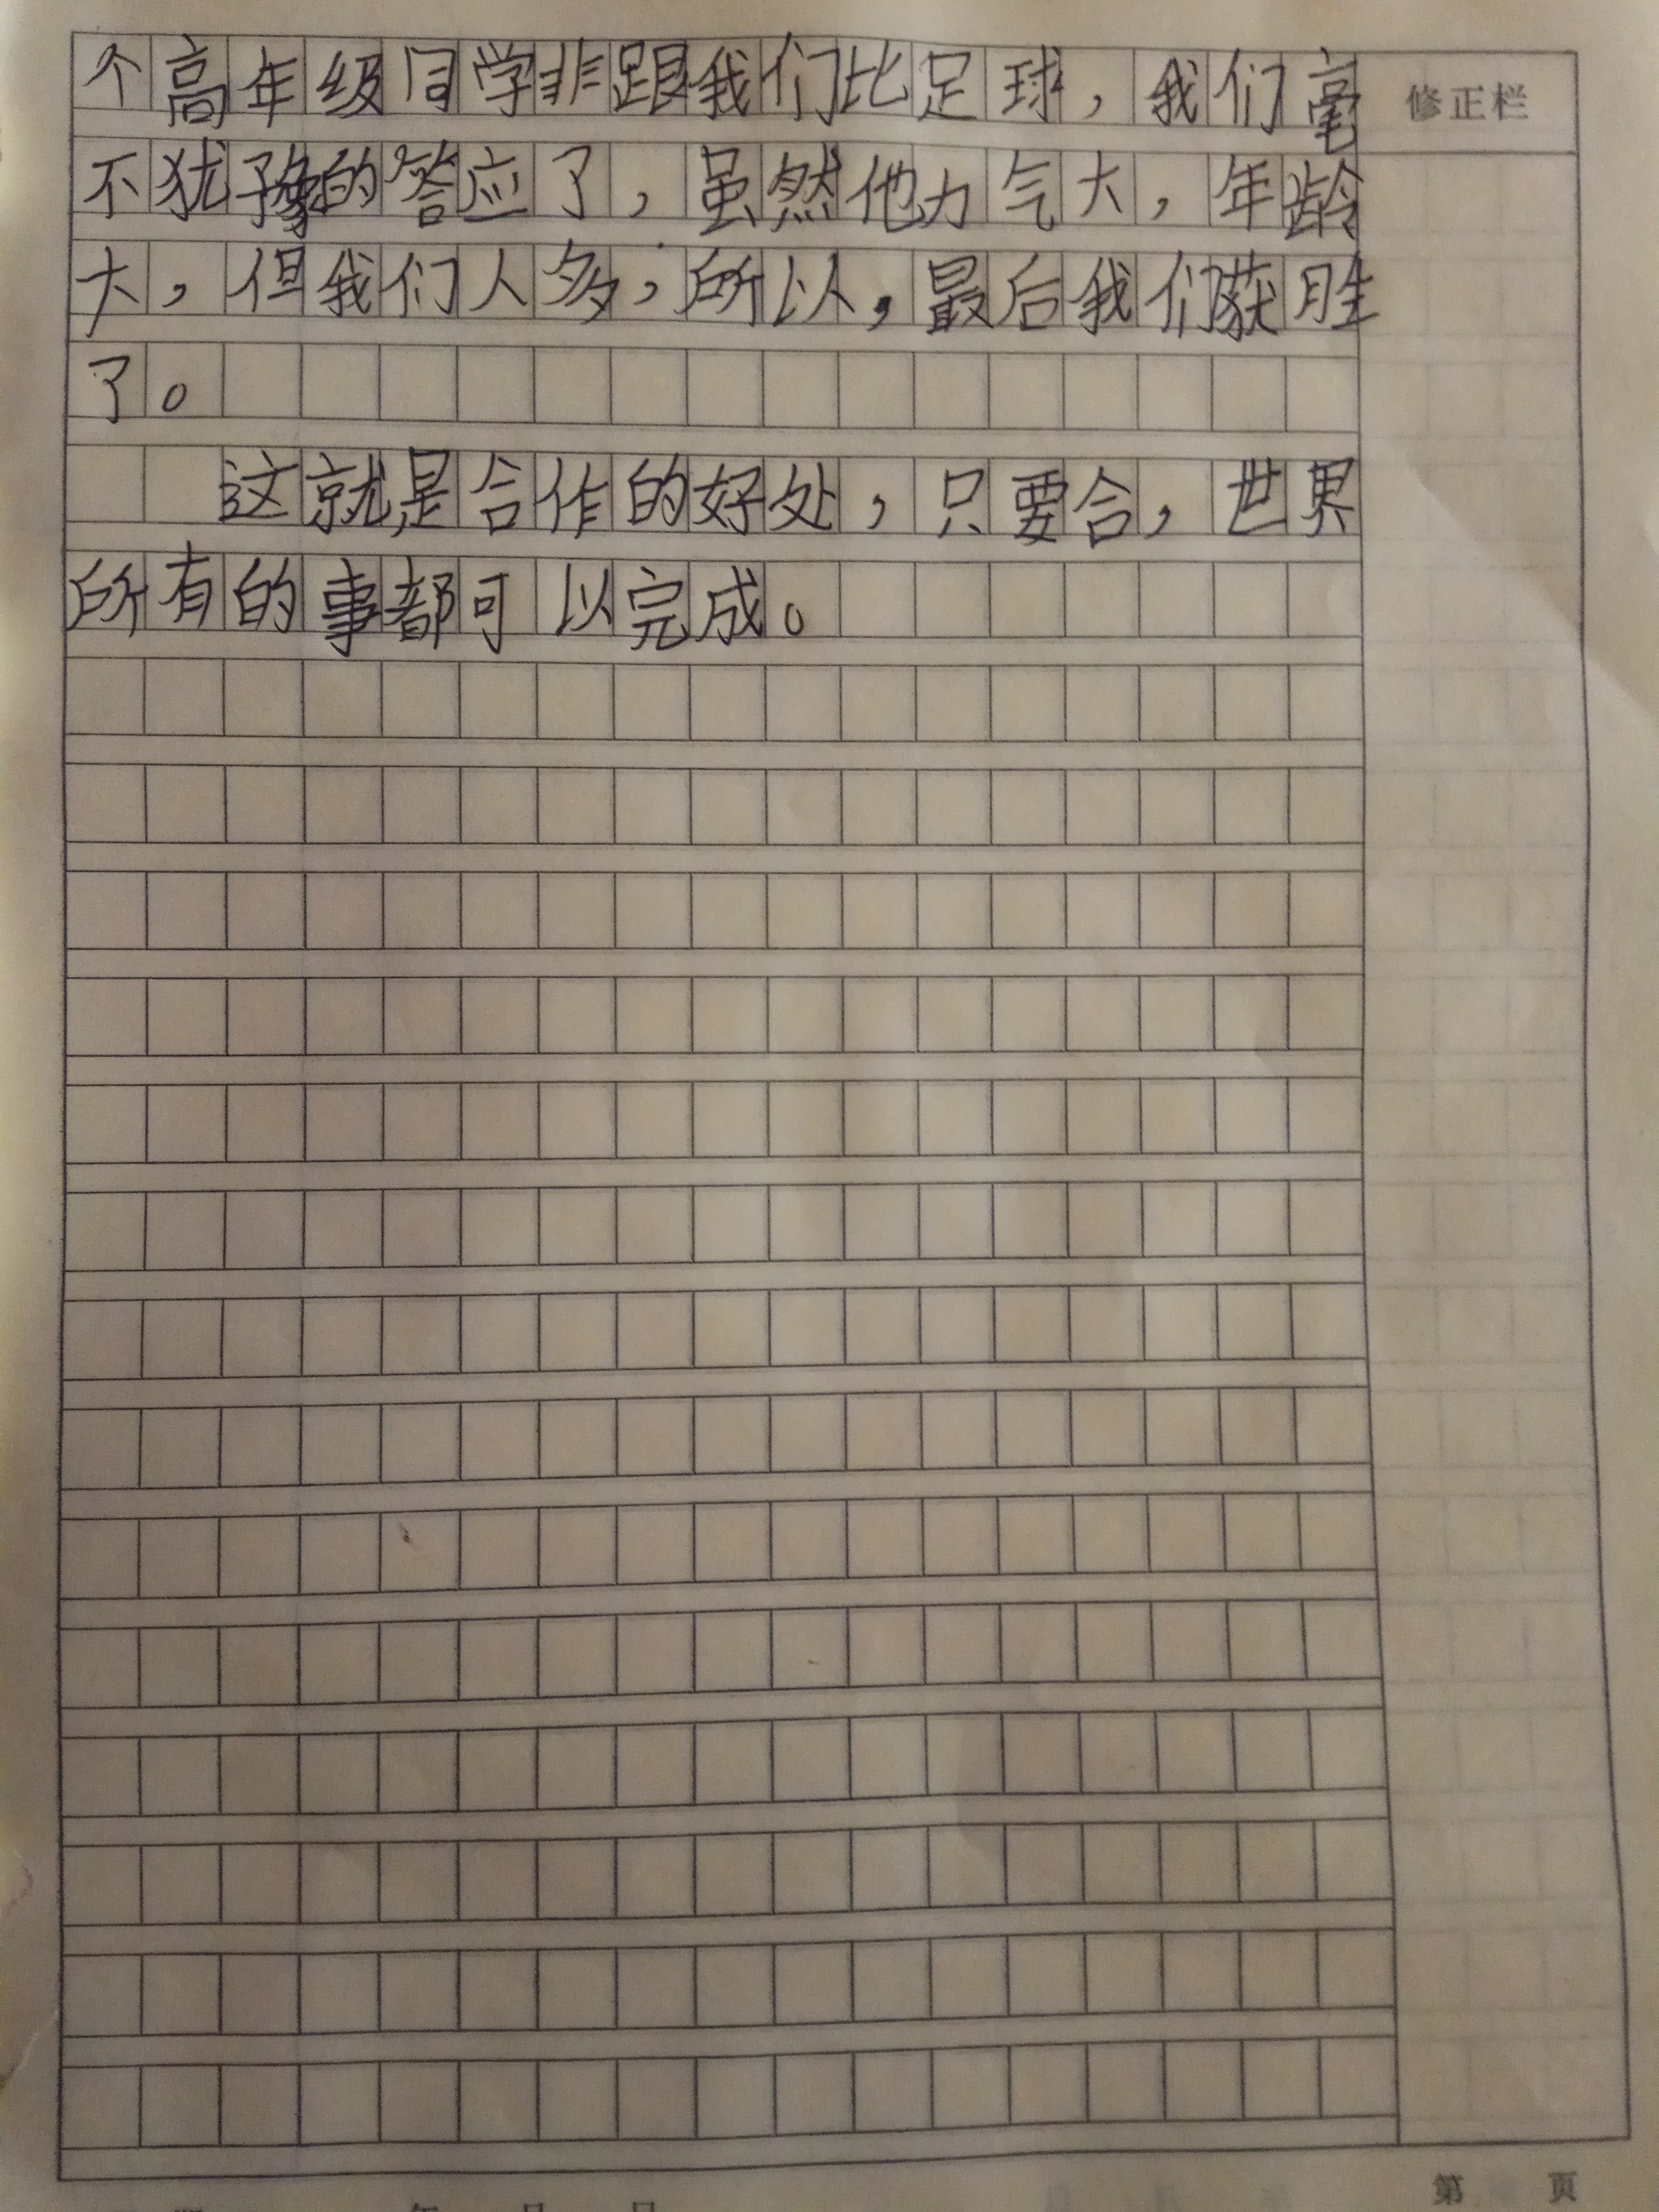 个高年级同学非跟我们比足球，我们毫
修正栏
不犹豫的答应了，虽然他力气大，年龄
大，但我们人多，所以，最后我们获胜
了。
这就是合作的好处，只要合，世界
所有的事都可以完成。
第 页